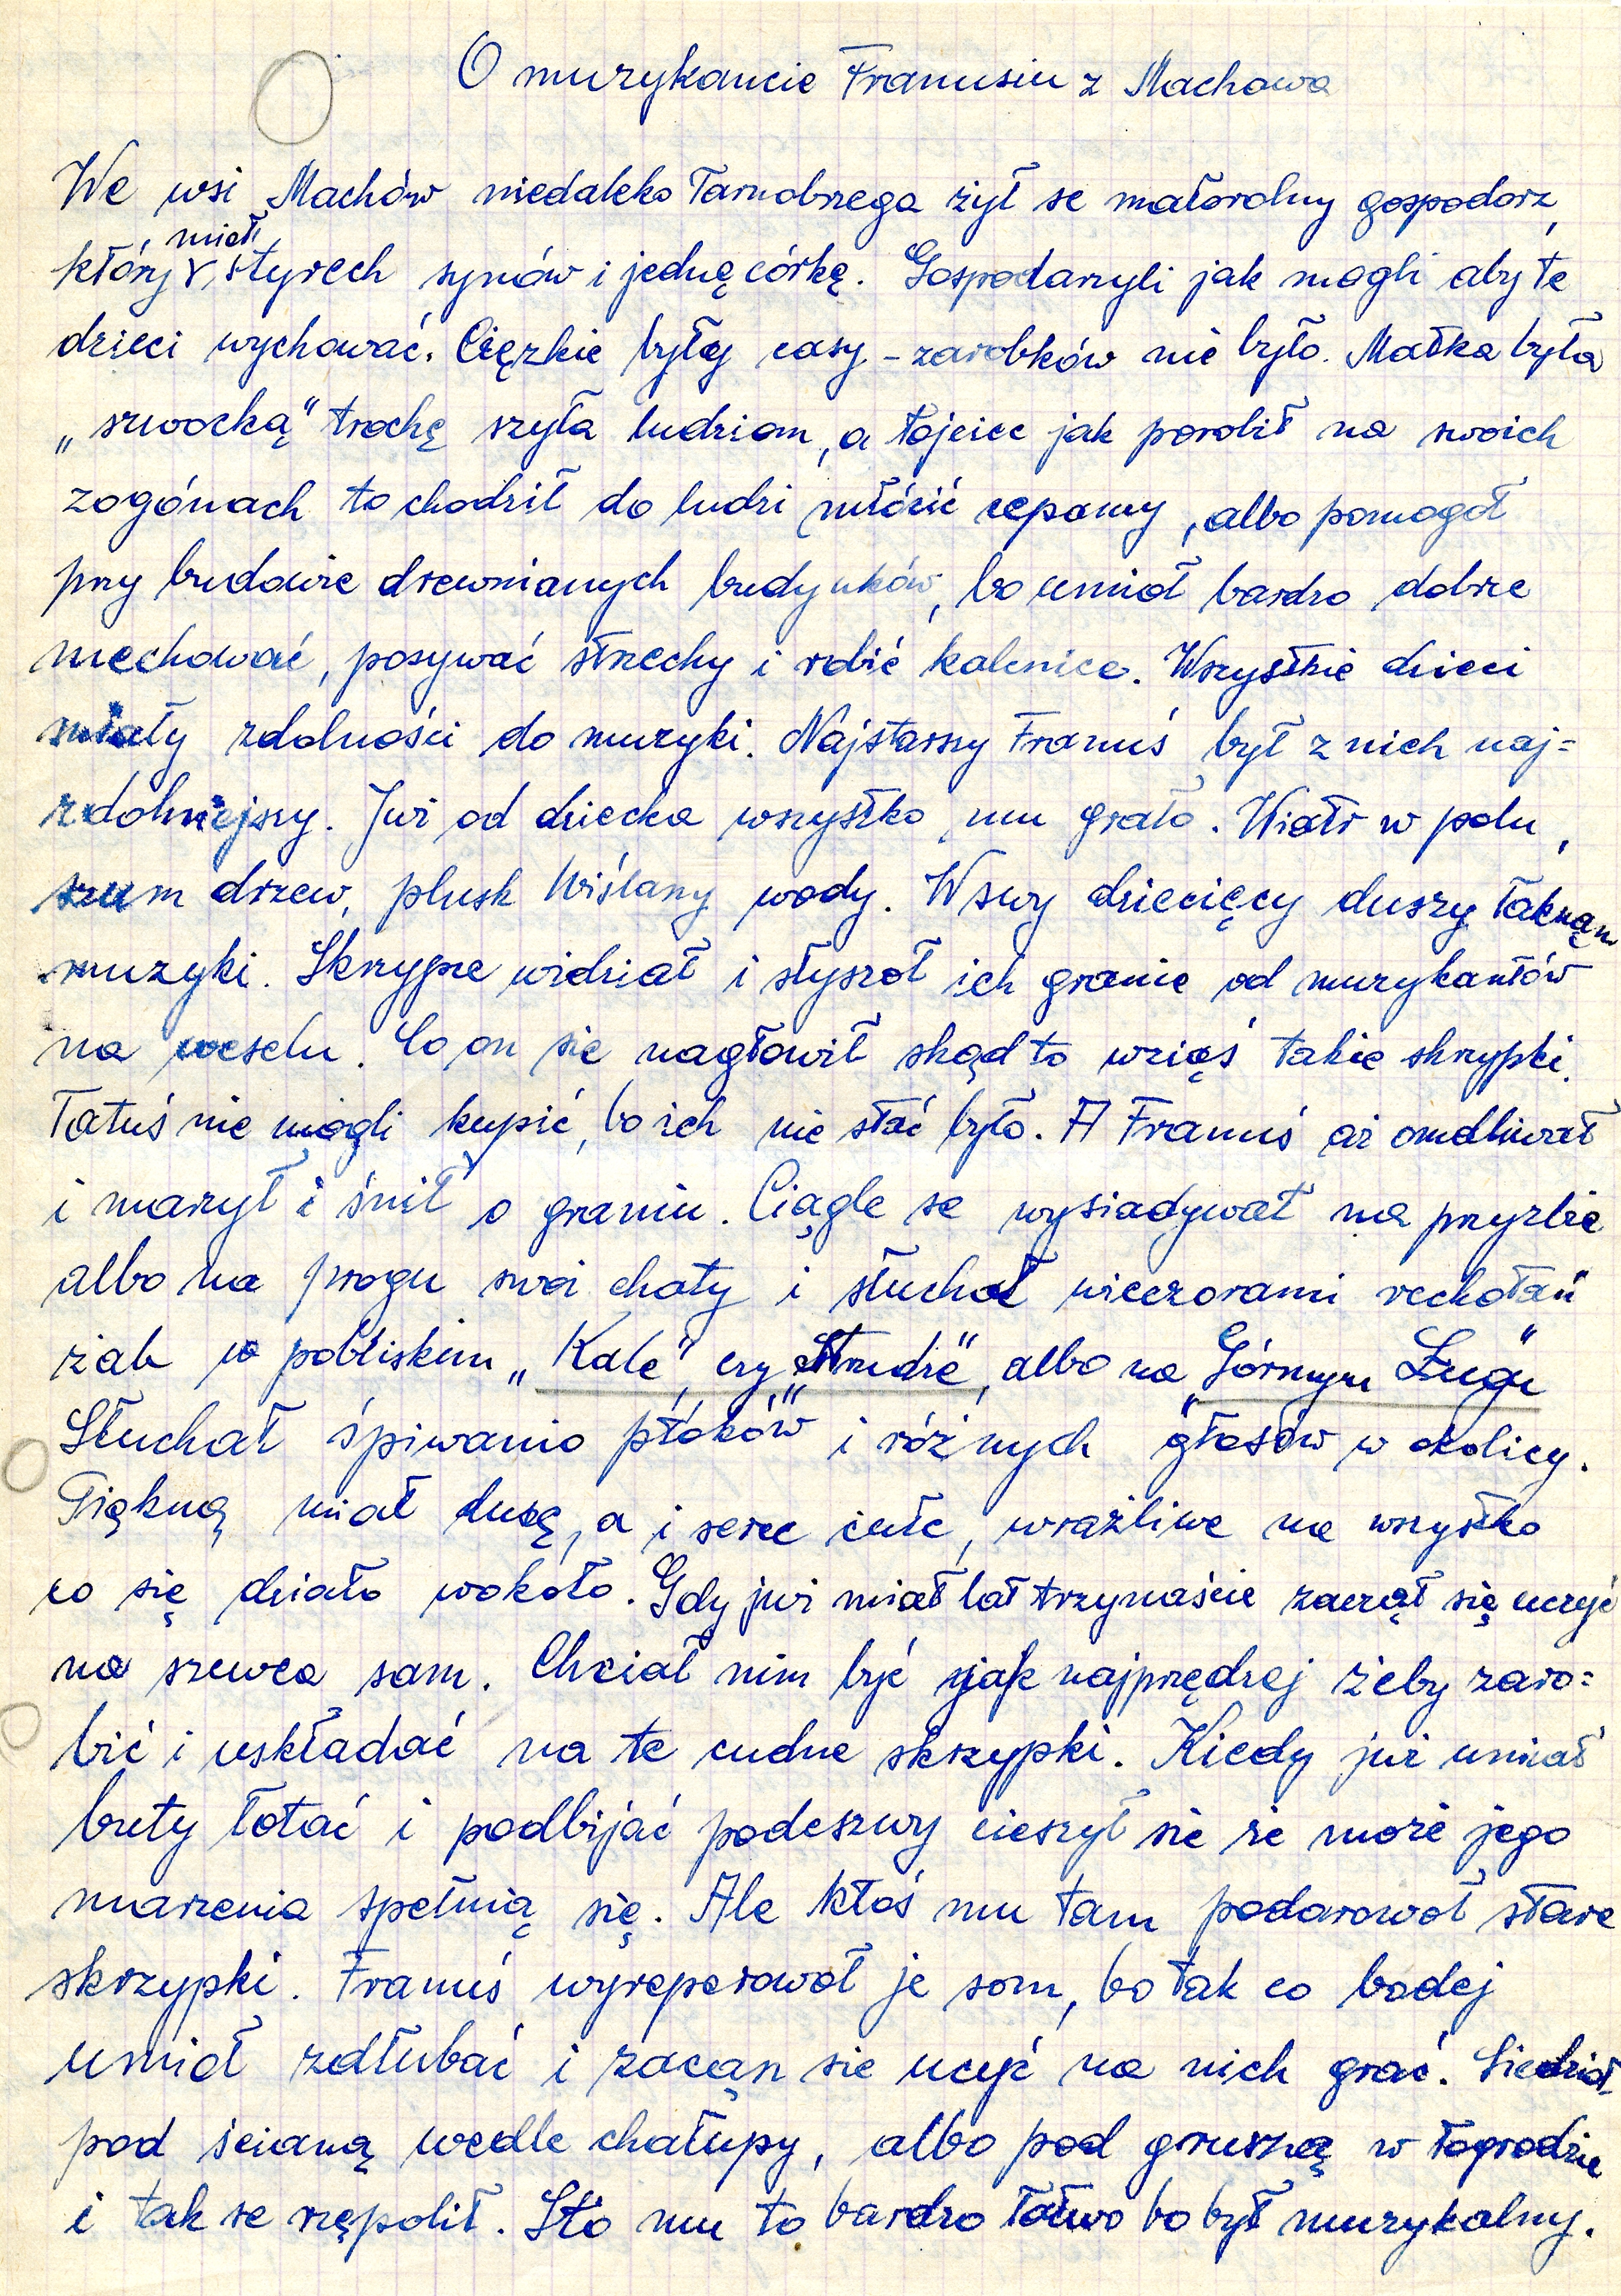 O muzykancie Franusiu z Machowa
We wsi Machów niedaleko Tarnobrzega żył se małorolny gospodorz,
który miał styrech synów i jednę córkę. Gospodarzyli jak mogli aby te
dzieci wychować. Ciężkie były casy - zarobków nie było. Matka była
„szwocką" trochę szyła ludziom, a łojciec jak porobił na swoich
zogónach to chodził do ludzi młócić cepamy, albo pomogoł
przy budowie drewnianych budynków, bo umioł bardzo dobrze
mechować, posywać strzechy i robić kalenice. Wszystkie dzieci
miały zdolności do muzyki. Najstarszy Franuś był z nich naj=
zdolniejszy. Już od dziecka wszystko mu grało. Wiatr w polu,
szum drzew, plusk Wiślany wody. W swy dziecięcy duszy łaknąn
muzyki. Skrzypce widział i słyszoł ich granie od muzykantów
na weselu. Co on się nagłowił skąd to wziąś takie skrzypki.
Tatuś nie mogli kupić, bo ich nie stać było. A Franuś aż omdliwał
i marzył i śnił o graniu. Ciągle se wysiadywał na przyzbie
albo na progu swoi chaty i słuchał wieczorami rechotań
żab w pobliskim „Kale", czy „Strudze", albo na „Górnym Ługu"
Słuchał śpiwanio ptoków i różnych głosów w okolicy.
Piękną miał duszę, a i serce ciułe, wrażliwe na wszystko
co się działo wokoło. Gdy już miał lat trzynaście zaczął się uczyć
na szewca sam. Chciał nim być jak najprędzej żeby zaro=
bić i uskładać na te cudne skrzypki. Kiedy już umiał
buty łotać i podbijać podeszwy cieszył się że może jego
marzenia spełnią się. Ale ktoś mu tam podarowoł stare
skrzypki. Franuś wyreperowoł je som, bo tak co bodej
umioł zdłubać i zacąn sie ucyć na nich grać. Siedzioł
pod ścianą wedle chałupy, albo pod gruszką w łogrodzie
i tak se rzępolił. Szło mu to bardzo łatwo bo był muzykalny.